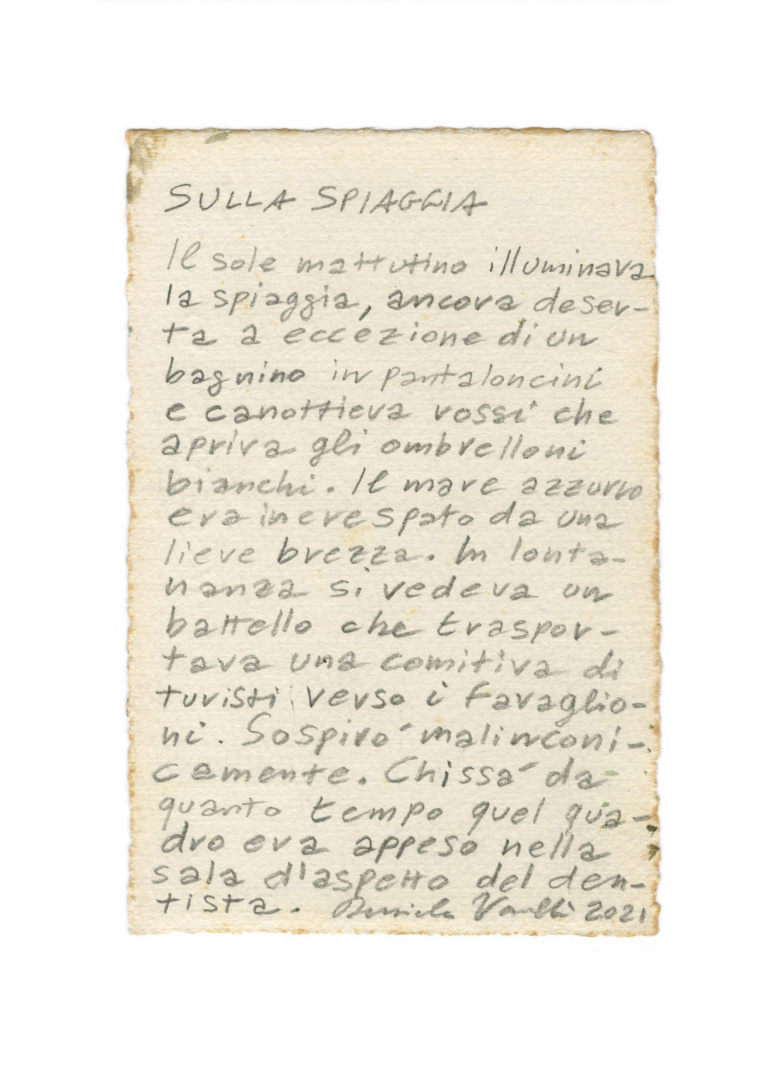 SULLA SPIAGGIA
Il sole mattutino illuminava
la spiaggia, ancora deser-
ta a eccezione di un
bagnino in pantaloncini
e canottiera rossi che
apriva gli ombrelloni
bianchi. Il mare azzurro
era increspato da una
lieve brezza. In lonta-
nanza si vedeva un
battello che traspor-
tava una comitiva di
turisti verso i Faraglio-
ni. Sospirò malinconi-
camente. Chissà da
quanto tempo quel qua-
dro era appeso nella
sala d'aspetto del den-
tista. 2021